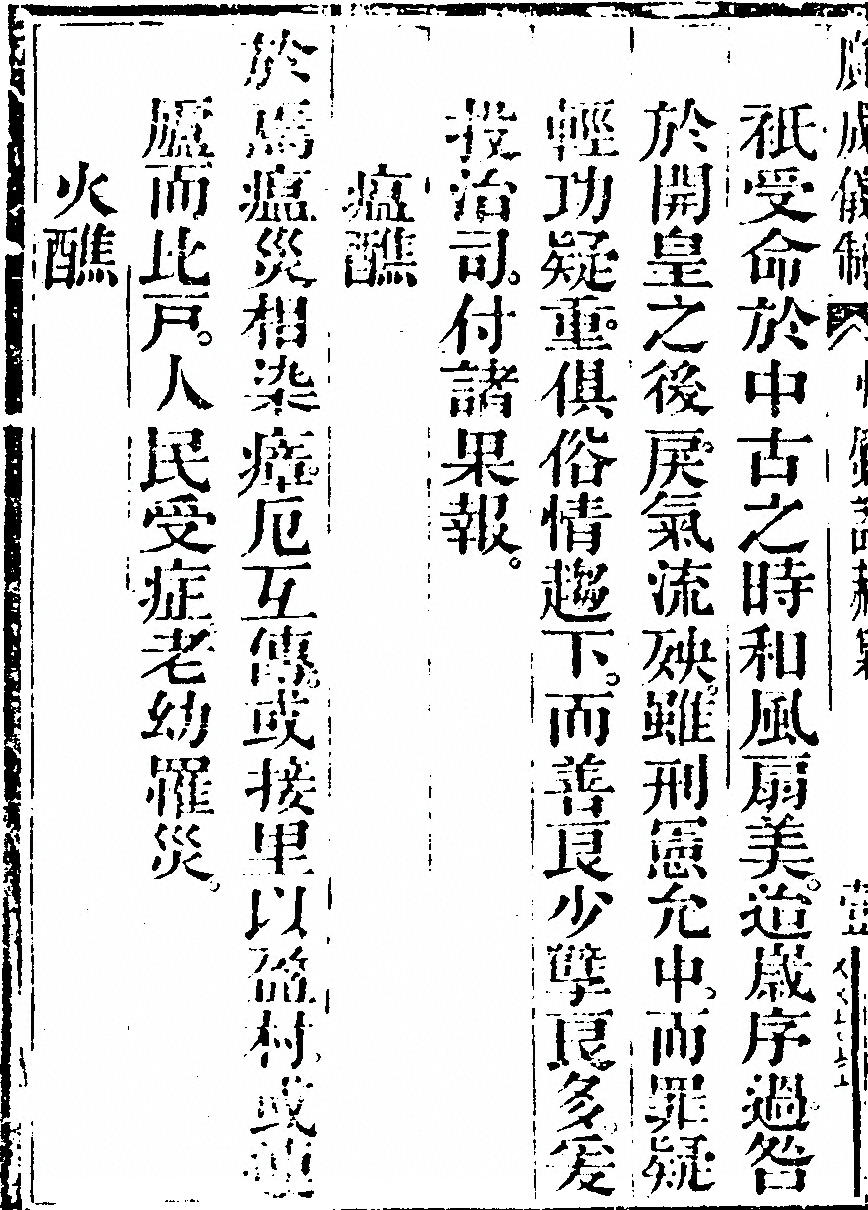 廣成儀制
祇受命於中古之時和風扇美。迨歲序過咎
於開皇之後戾氣流殃。雖刑憲允中。而罪疑
輕功疑重。俱俗情趨下。而善良少孽良多。爰
投治司。付諸果報。
瘟醮
於焉瘟災相染瘴厄互傳。或接里以盈村。或連
廬而比戸。人民受症老幼罹災。
火醮